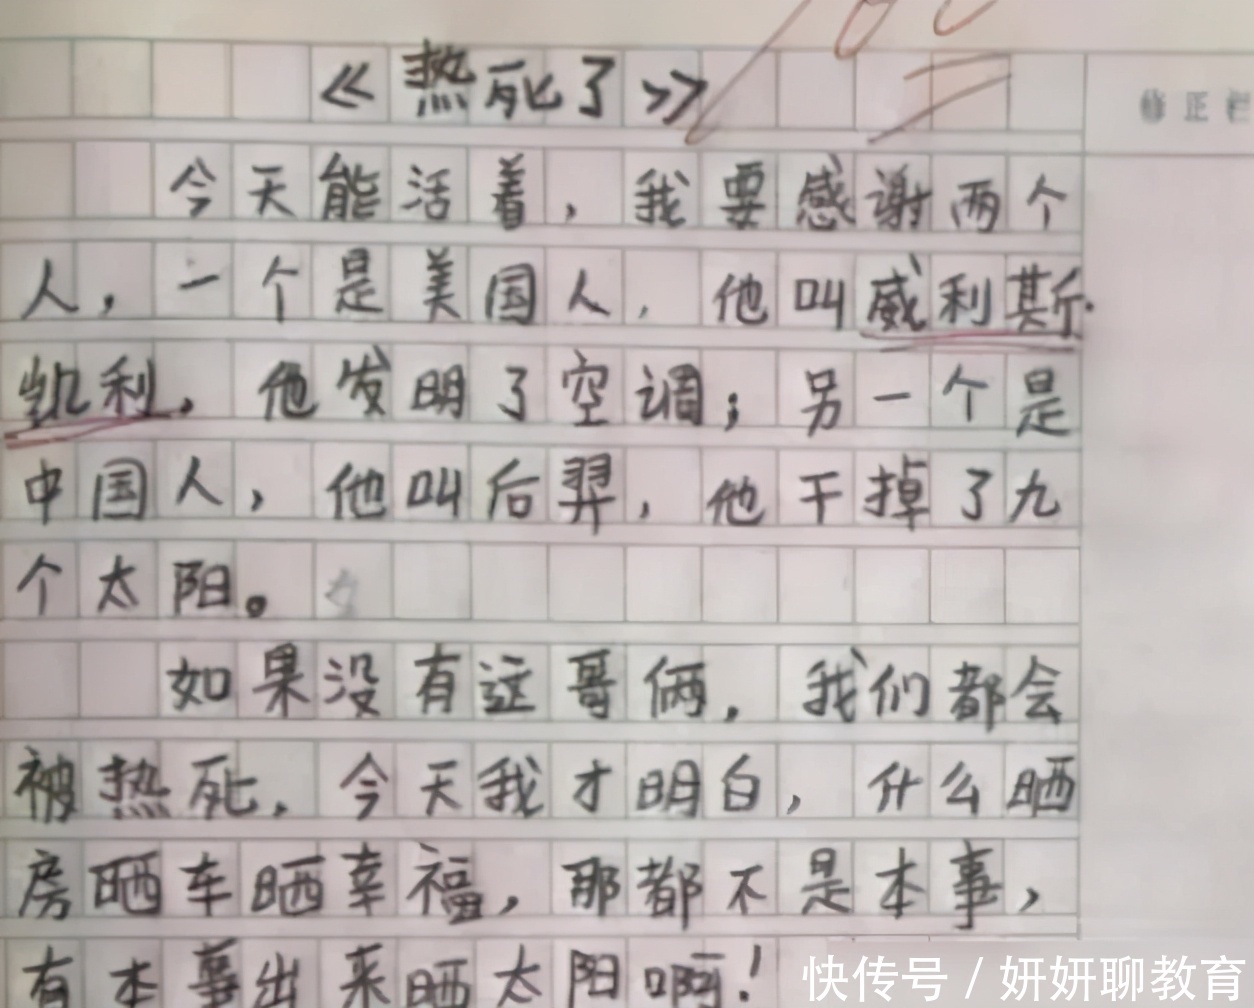 100
《热死了》
修正栏
今天能活着，我要感谢两个
人，一个是美国人，他叫威利斯·
凯利，他发明了空调；另一个是
中国人，他叫后羿，他干掉了九
个太阳。
如果没有这哥俩，我们都会
被热死，今天我才明白，什么晒
房晒车晒幸福，那都不是本事，
有本事出来晒太阳啊！
快传号 / 妍妍聊教育